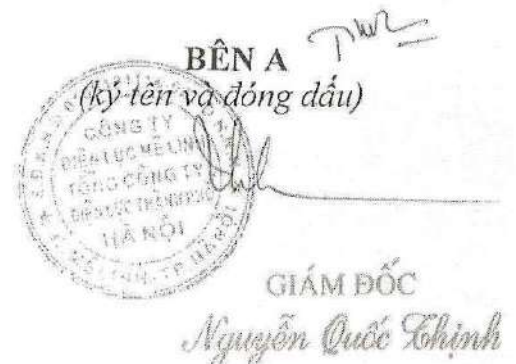 BÊN A
(ký tên và đóng dấu)
CÔNG TY
ĐIỆN LỰC MÊ LINH
TỔNG CÔNG TY
ĐIỆN LỰC THÀNH PHỐ
HÀ NỘI
MÊ LINH, TP HÀ NỘI
GIÁM ĐỐC
Nguyễn Quốc Thinh